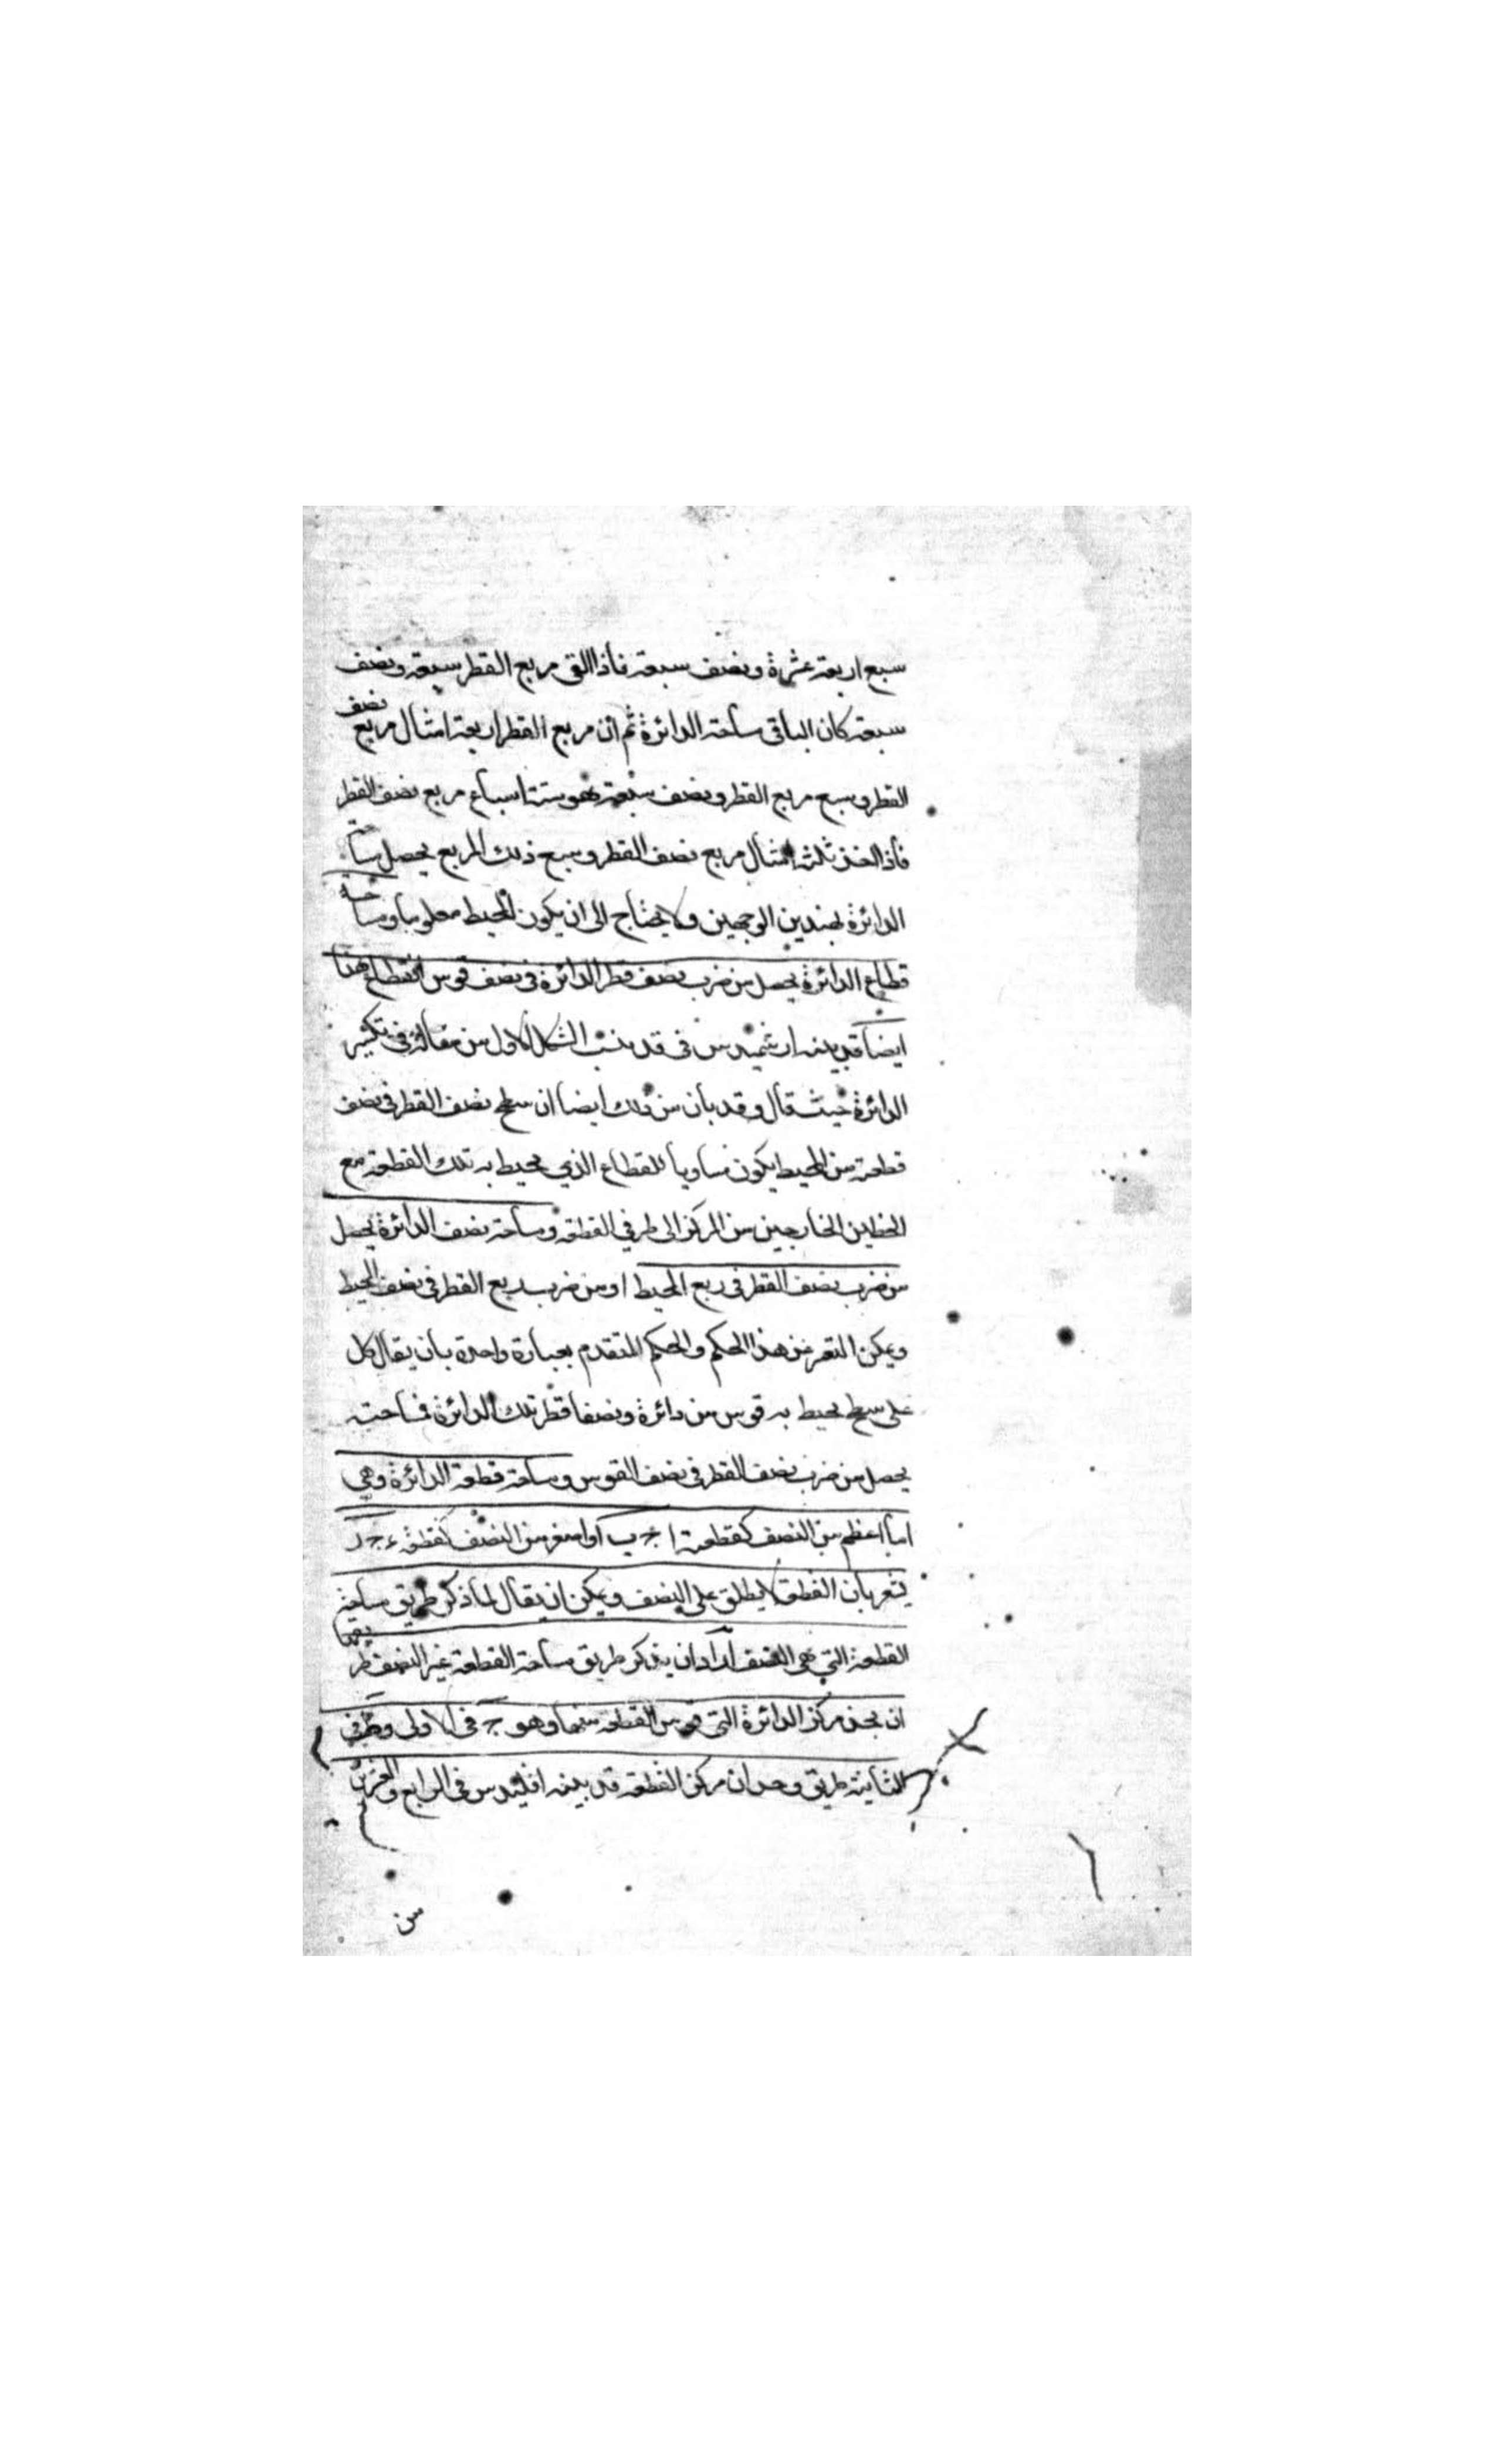 سبع اربعة عشرة ونصف سبعة فأذا القى مربع القطر سبعة ونصف
سبعة كان الباقى مساحة الدائرة ثم ان مربع القطر اربعة امثال مربع نصف
القطر وسبع مربع القطر ونصف سبعة هو ستة اسباع مربع نصف القطر
فأذا اخذ ثلثة امثال مربع نصف القطر وسبع ذلك المربع يحصل مساحة
الدائرة بهذين الوجهين ولا يحتاج الى ان يكون المحيط معلوما ومساحة
قطاع الدائرة يحصل من ضرب نصف قطر الدائرة فى نصف قوس القطاع هذا
ايضا قد بينه ارشميدس فى الشكل الاول من مقالته فى تكسير
الدائرة حيث قال وقد بان من ذلك ايضا ان سطح نصف القطر فى نصف
قطعة من المحيط يكون مساويا للقطاع الذى يحيط به تلك القطعة مع
الخطين الخارجين من المركز الى طرفي القطعة ومساحة نصف الدائرة يحصل
من ضرب نصف القطر فى ربع المحيط او من ضرب ربع القطر فى نصف المحيط
ويمكن التعبير عن هذا الحكم والحكم المتقدم بعبارة واحدة بان يقال كل
سطح يحيط به قوس من دائرة ونصفا قطر تلك الدائرة فمساحته
يحصل من ضرب نصف القطر فى نصف القوس ومساحة قطعة الدائرة وهي
اما اعظم من النصف كقطعة ا ج ب او اصغر من النصف كقطعة ء ج د
يشعر بان القطعة لا يطلق على النصف ويمكن ان يقال لما ذكر طريق مساحة
القطعة التي هي النصف اراد ان يذكر طريق مساحة القطعة غير النصف
ان يجد مركز الدائرة التى قوس القطعة منها وهو ج فى الاولى
الثانية طريق وجدان مركز القطعة قد بينه اقليدس فى الرابع والعشرين
من